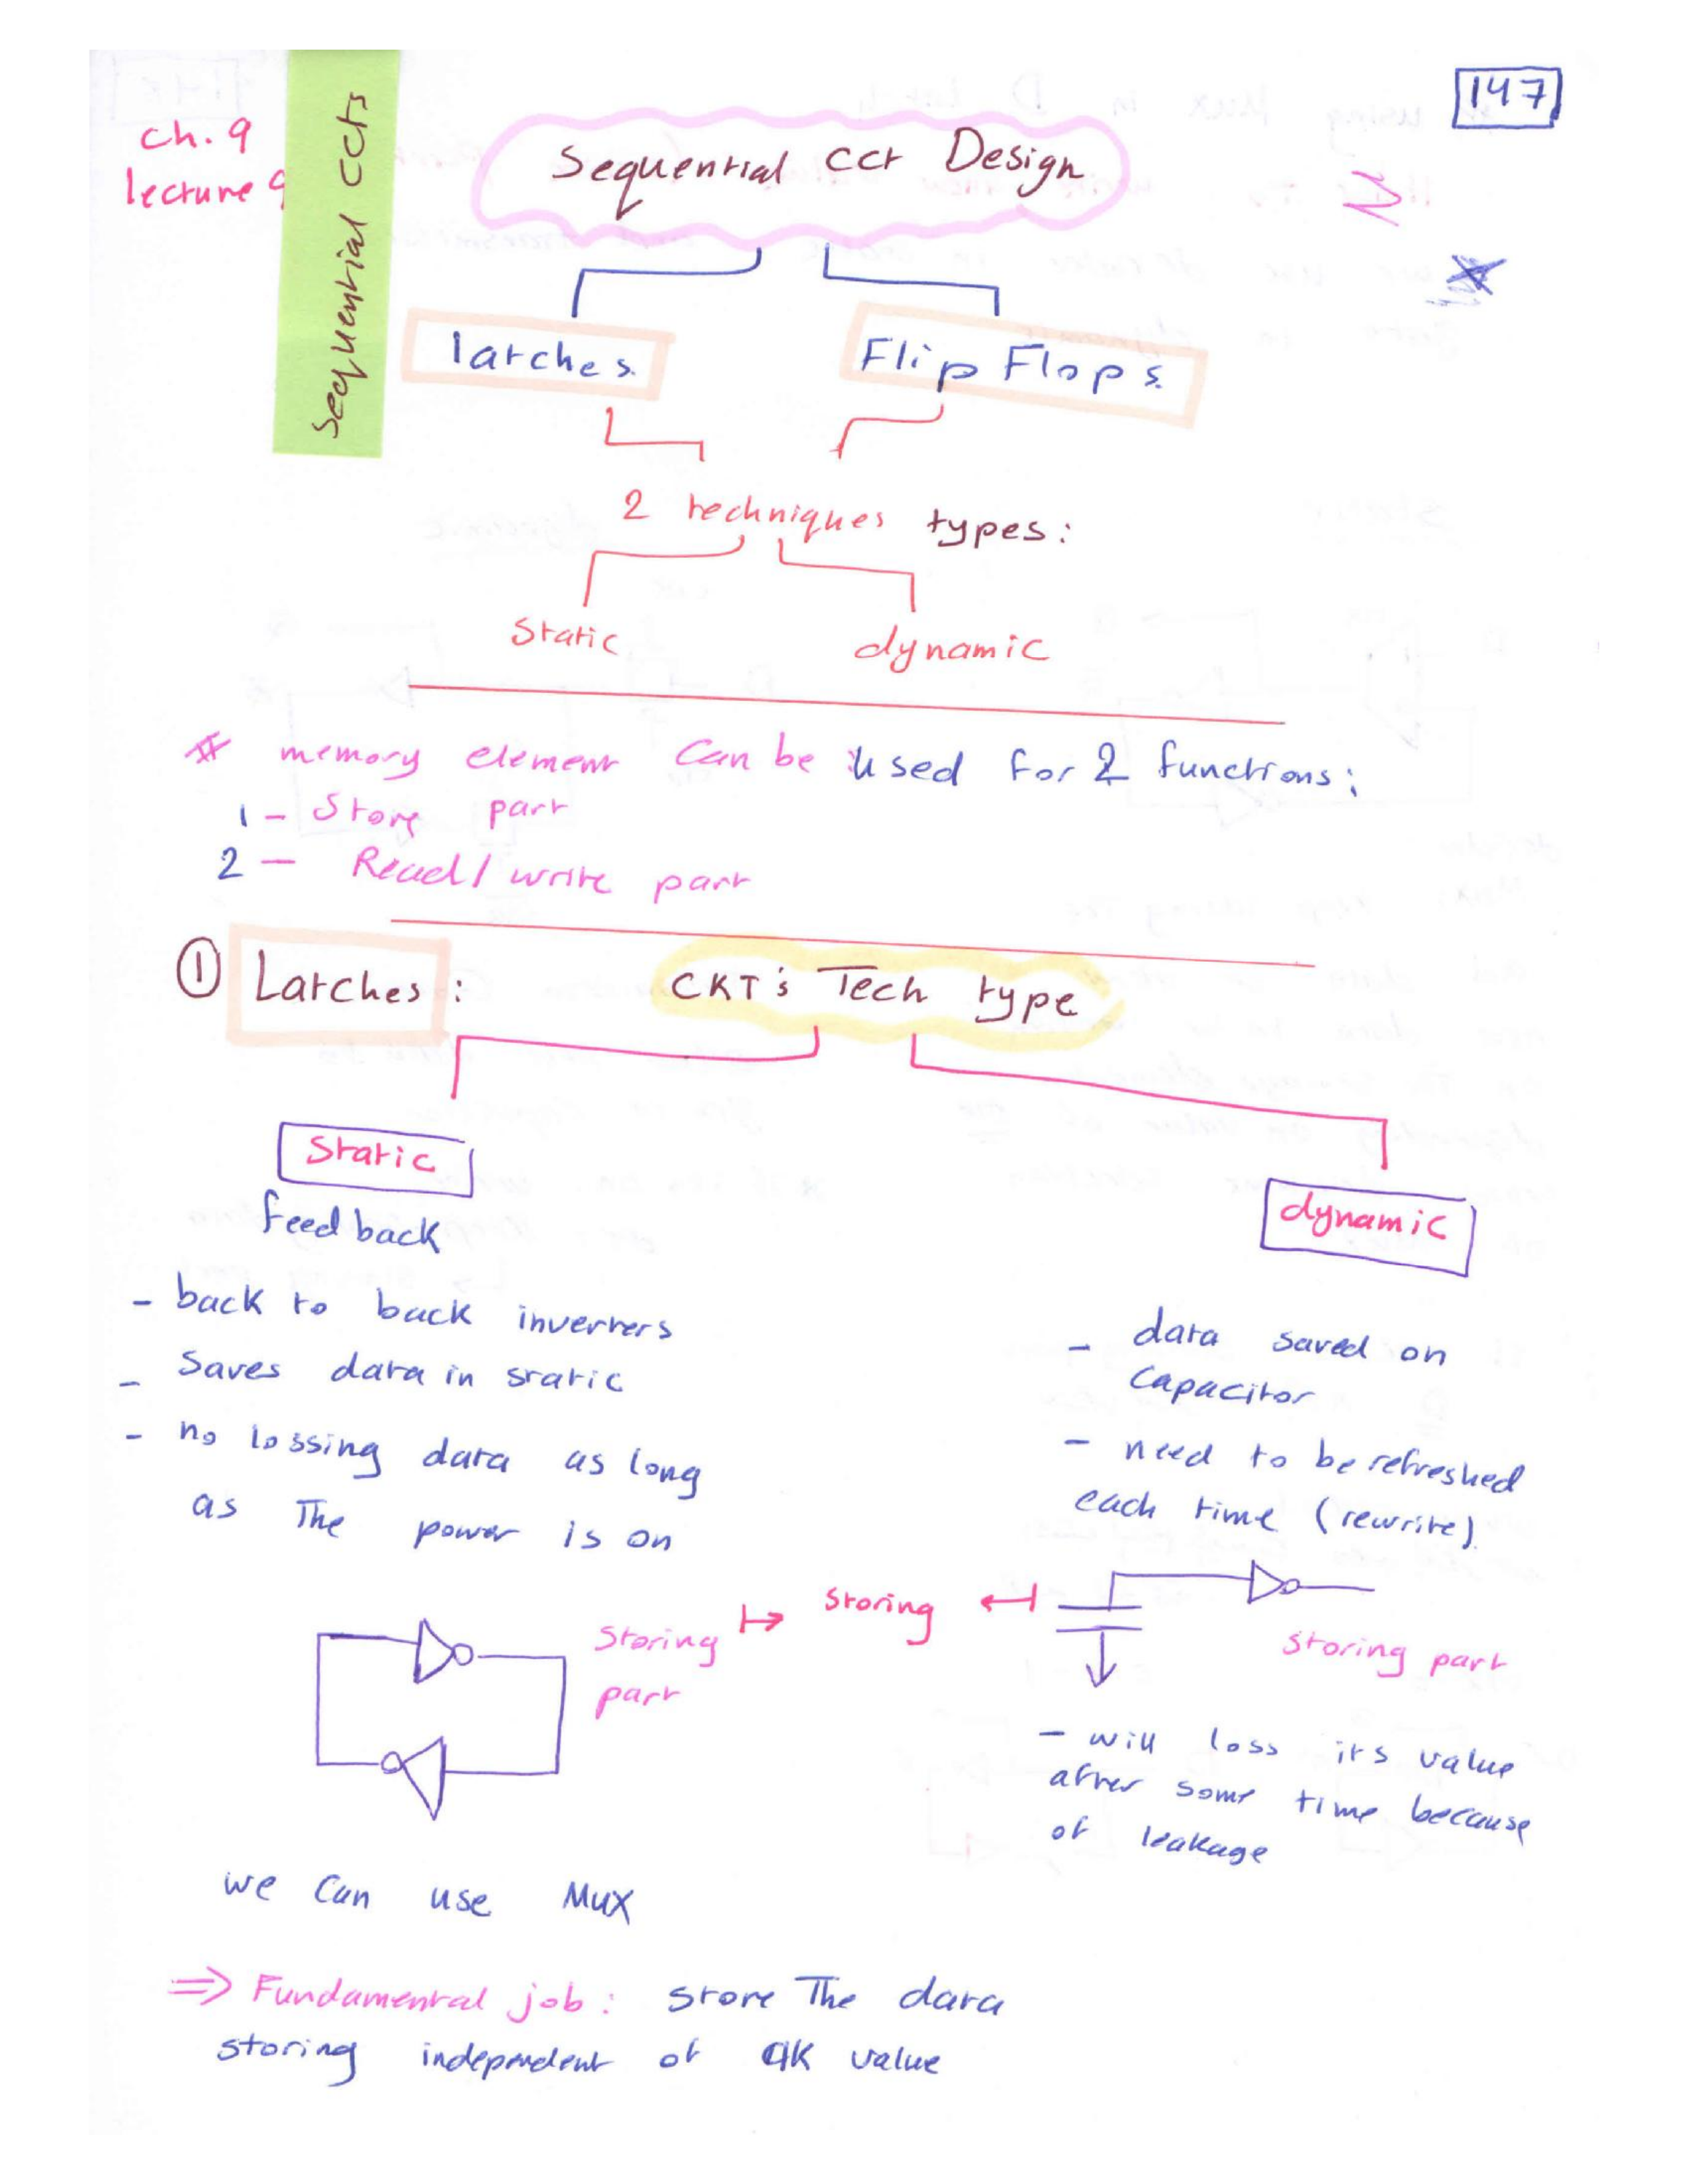 147
ch. 9
lecture 9
Sequential ccts
Sequential cct Design
latches
Flip Flops
2 techniques types:
Static
dynamic
* memory element can be used for 2 functions:
1 - Store part
2 - Read/write part
① Latches:
CKT's Tech type
Static
feedback
- back to back inverters
- Saves data in static
- no lossing data as long
as The power is on
Storing
part
storing
dynamic
- data saved on
Capacitor
- need to be refreshed
each time (rewrite)
storing part
- will loss its value
after some time because
of leakage
we can use Mux
⇒ Fundamental job: store The data
storing independent of clk value